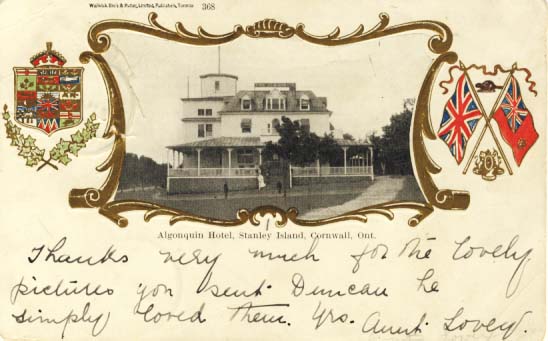 Warwick Bro's & Rutter, Limited, Publishers, Toronto 368
Algonquin Hotel, Stanley Island, Cornwall, Ont.
Thanks very much for the lovely
pictures you sent Duncan he
simply loved them. Yrs. Aunt Lovey.